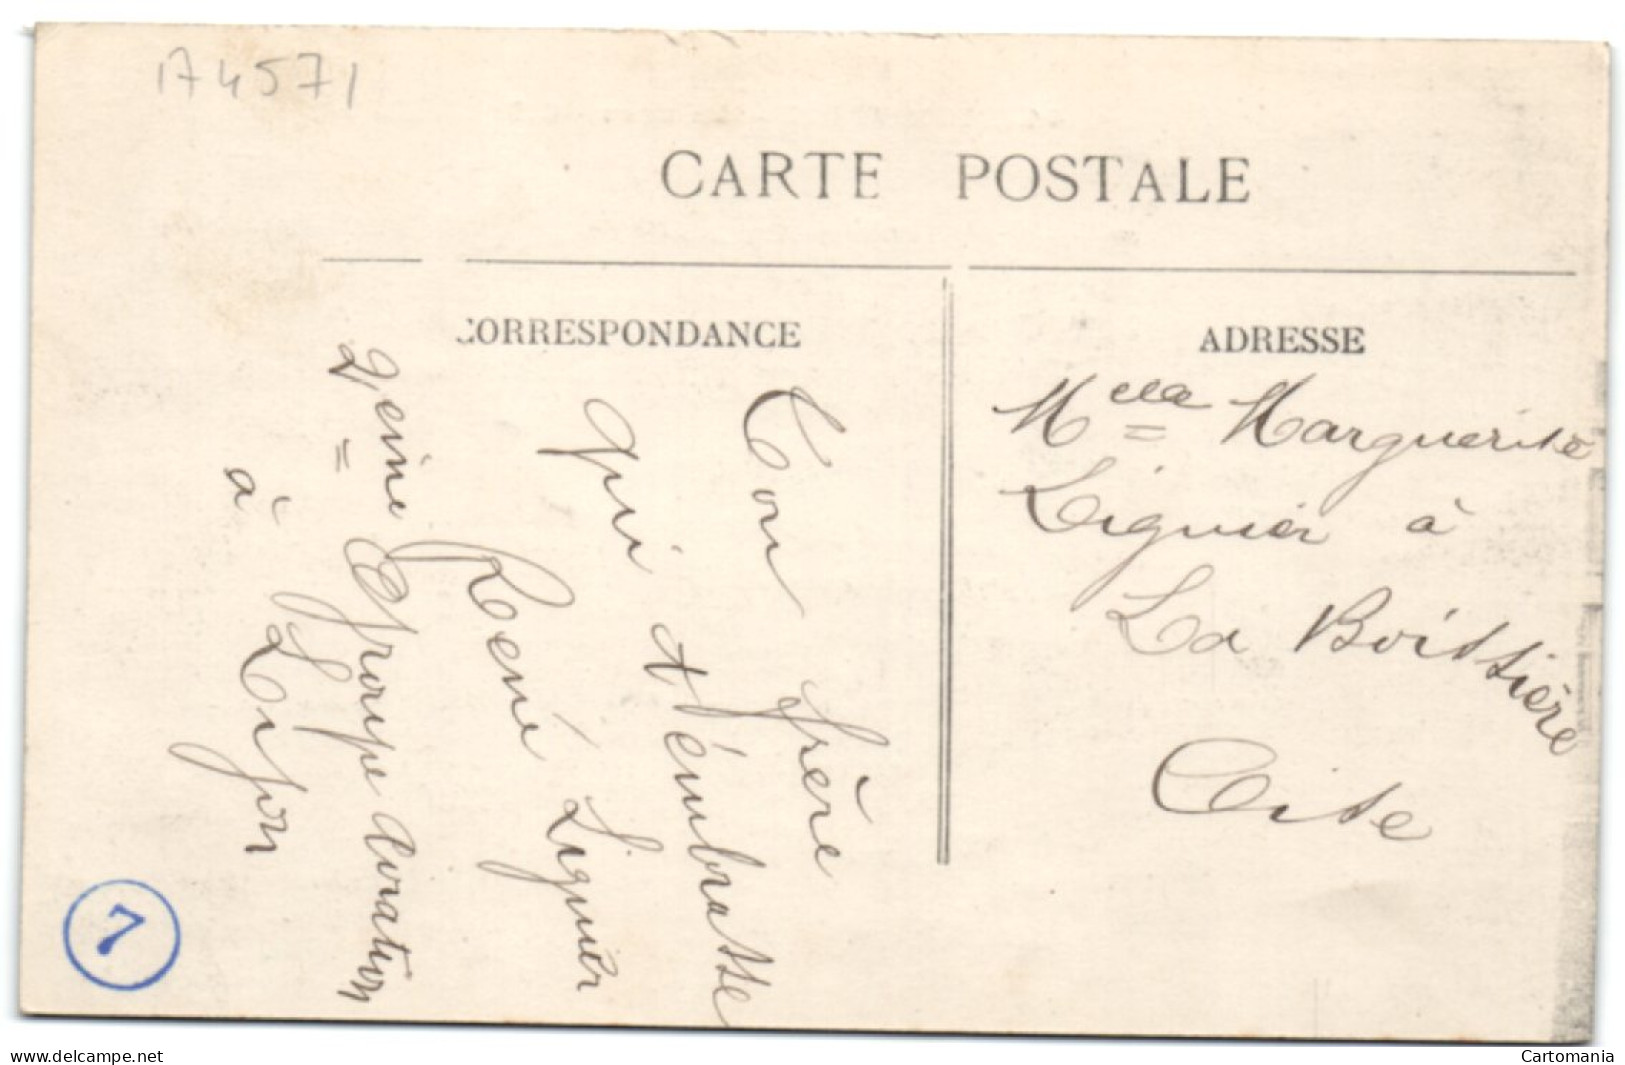 174571
CARTE POSTALE
CORRESPONDANCE
ADRESSE
Ton frère
qui t'émbrasse
René Liguier
2ème Groupe Aviation
à Lijon
Melle Marguerite
Liguier à
La Boissière
Oise
7
www.delcampe.net
Cartomania